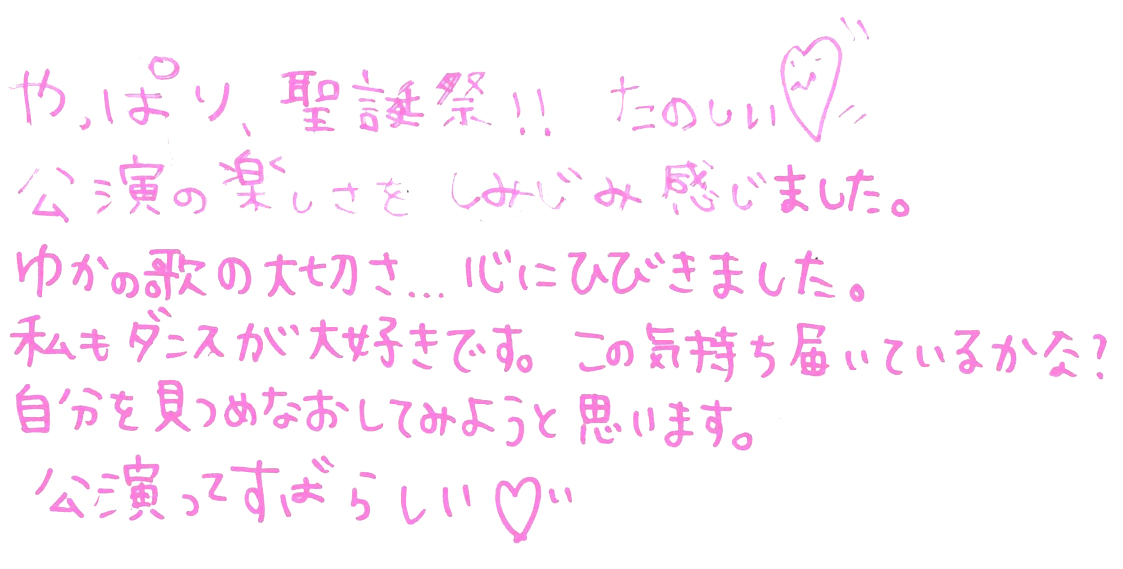 やっぱり、聖誕祭!! たのしい♡
公演の楽しさを しみじみ感じました。
ゆかの歌の大切さ... 心にひびきました。
私もダンスが大好きです。この気持ち届いているかな?
自分を見つめなおしてみようと思います。
公演ってすばらしい♡